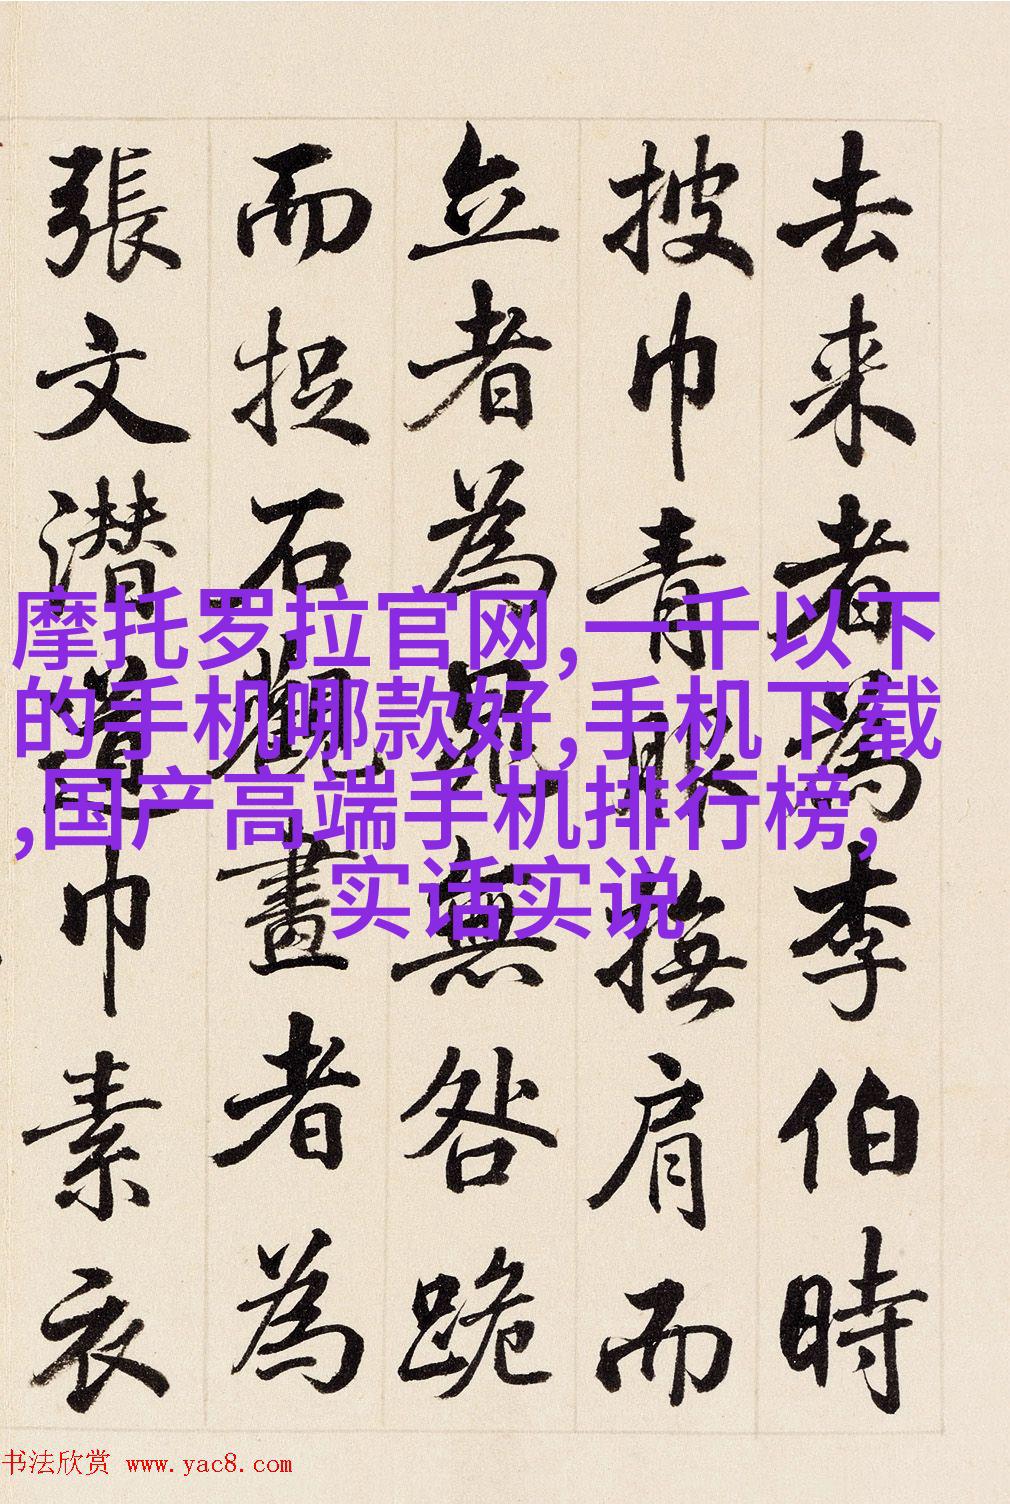 去来者為李伯時
披巾青服撫肩而
立者為晁無咎跪
而捉石觀畫者為
張文潜道巾素衣
摩托罗拉官网,一千以下
的手机哪款好,手机下载
,国产高端手机排行榜,
实话实说
书法欣赏 www.yac8.com